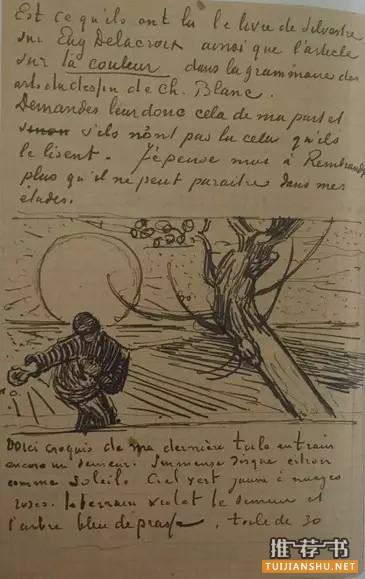 Est ce qu'ils ont lu le livre de Silvestre
sur Eug Delacroix ainsi que l'article
sur la couleur dans la grammaire des
arts du dessin de Ch. Blanc.
Demandes leur donc cela de ma part et
sinon s'ils n'ont pas lu cela qu'ils
le lisent. J'epense moi à Rembrandt
plus qu'il ne peut paraitre dans mes
études.
Voici croquis de ma dernière toile en train
encore un semeur. Immense disque citron
comme soleil. Ciel vert jaune à nuages
roses. le terrain violet le semeur et
l'arbre bleu de prusse. toile de 30
推荐书
TUIJIANSHU.NET